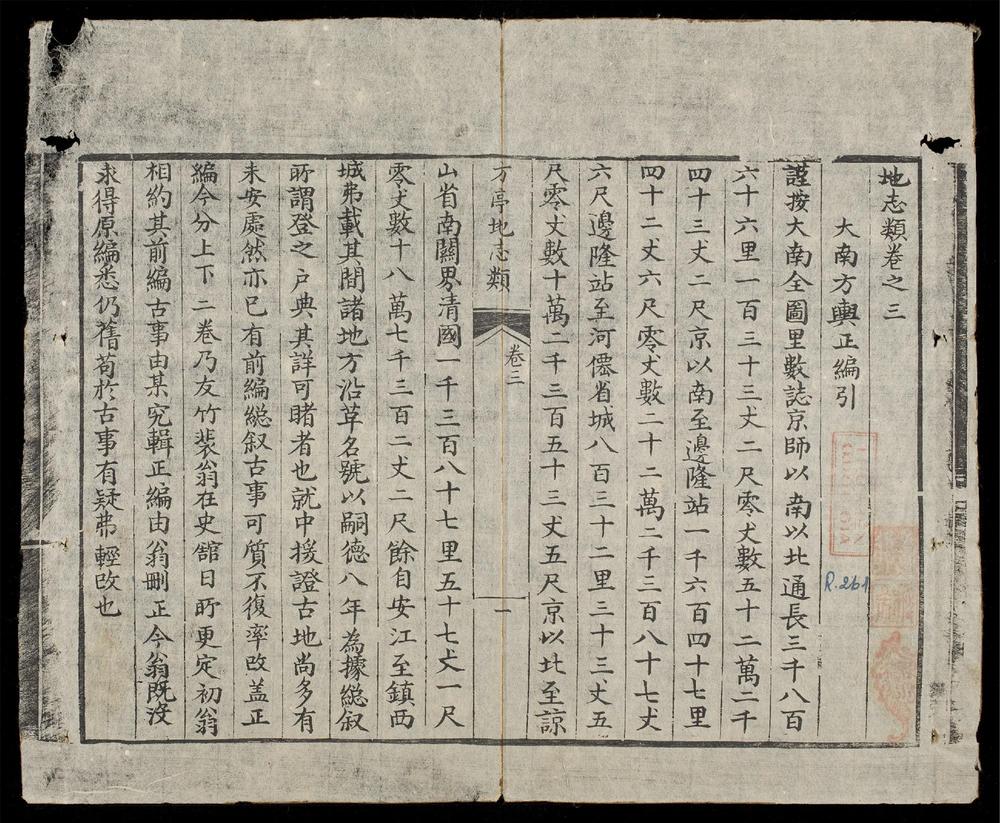 地志類卷之三
大南方輿正編引
謹按大南全圖里數誌京師以南以北通長三千八百
六十六里一百三十三丈二尺零丈數五十二萬二千
四十三丈二尺京以南至邊隆站一千六百四十七里
四十二丈六尺零丈數二十二萬二千三百八十七丈
六尺邊隆站至河僊省城八百三十二里三十三丈五
尺零丈數十萬二千三百五十三丈五尺京以北至諒
方亭地志類
卷三
一
山省南關界清國一千三百八十七里五十七丈一尺
零丈數十八萬七千三百二丈二尺餘自安江至鎮西
城弗載其間諸地方沿革名號以嗣德八年為據緫叙
所謂登之户典其詳可睹者也就中援證古地尚多有
未安處然亦已有前編緫叙古事可質不復率改蓋正
編今分上下二卷乃友竹裴翁在史舘日所更定初翁
相約其前編古事由某究輯正編由翁刪正今翁既沒
求得原編悉仍舊苟於古事有疑弗輕改也
R.261